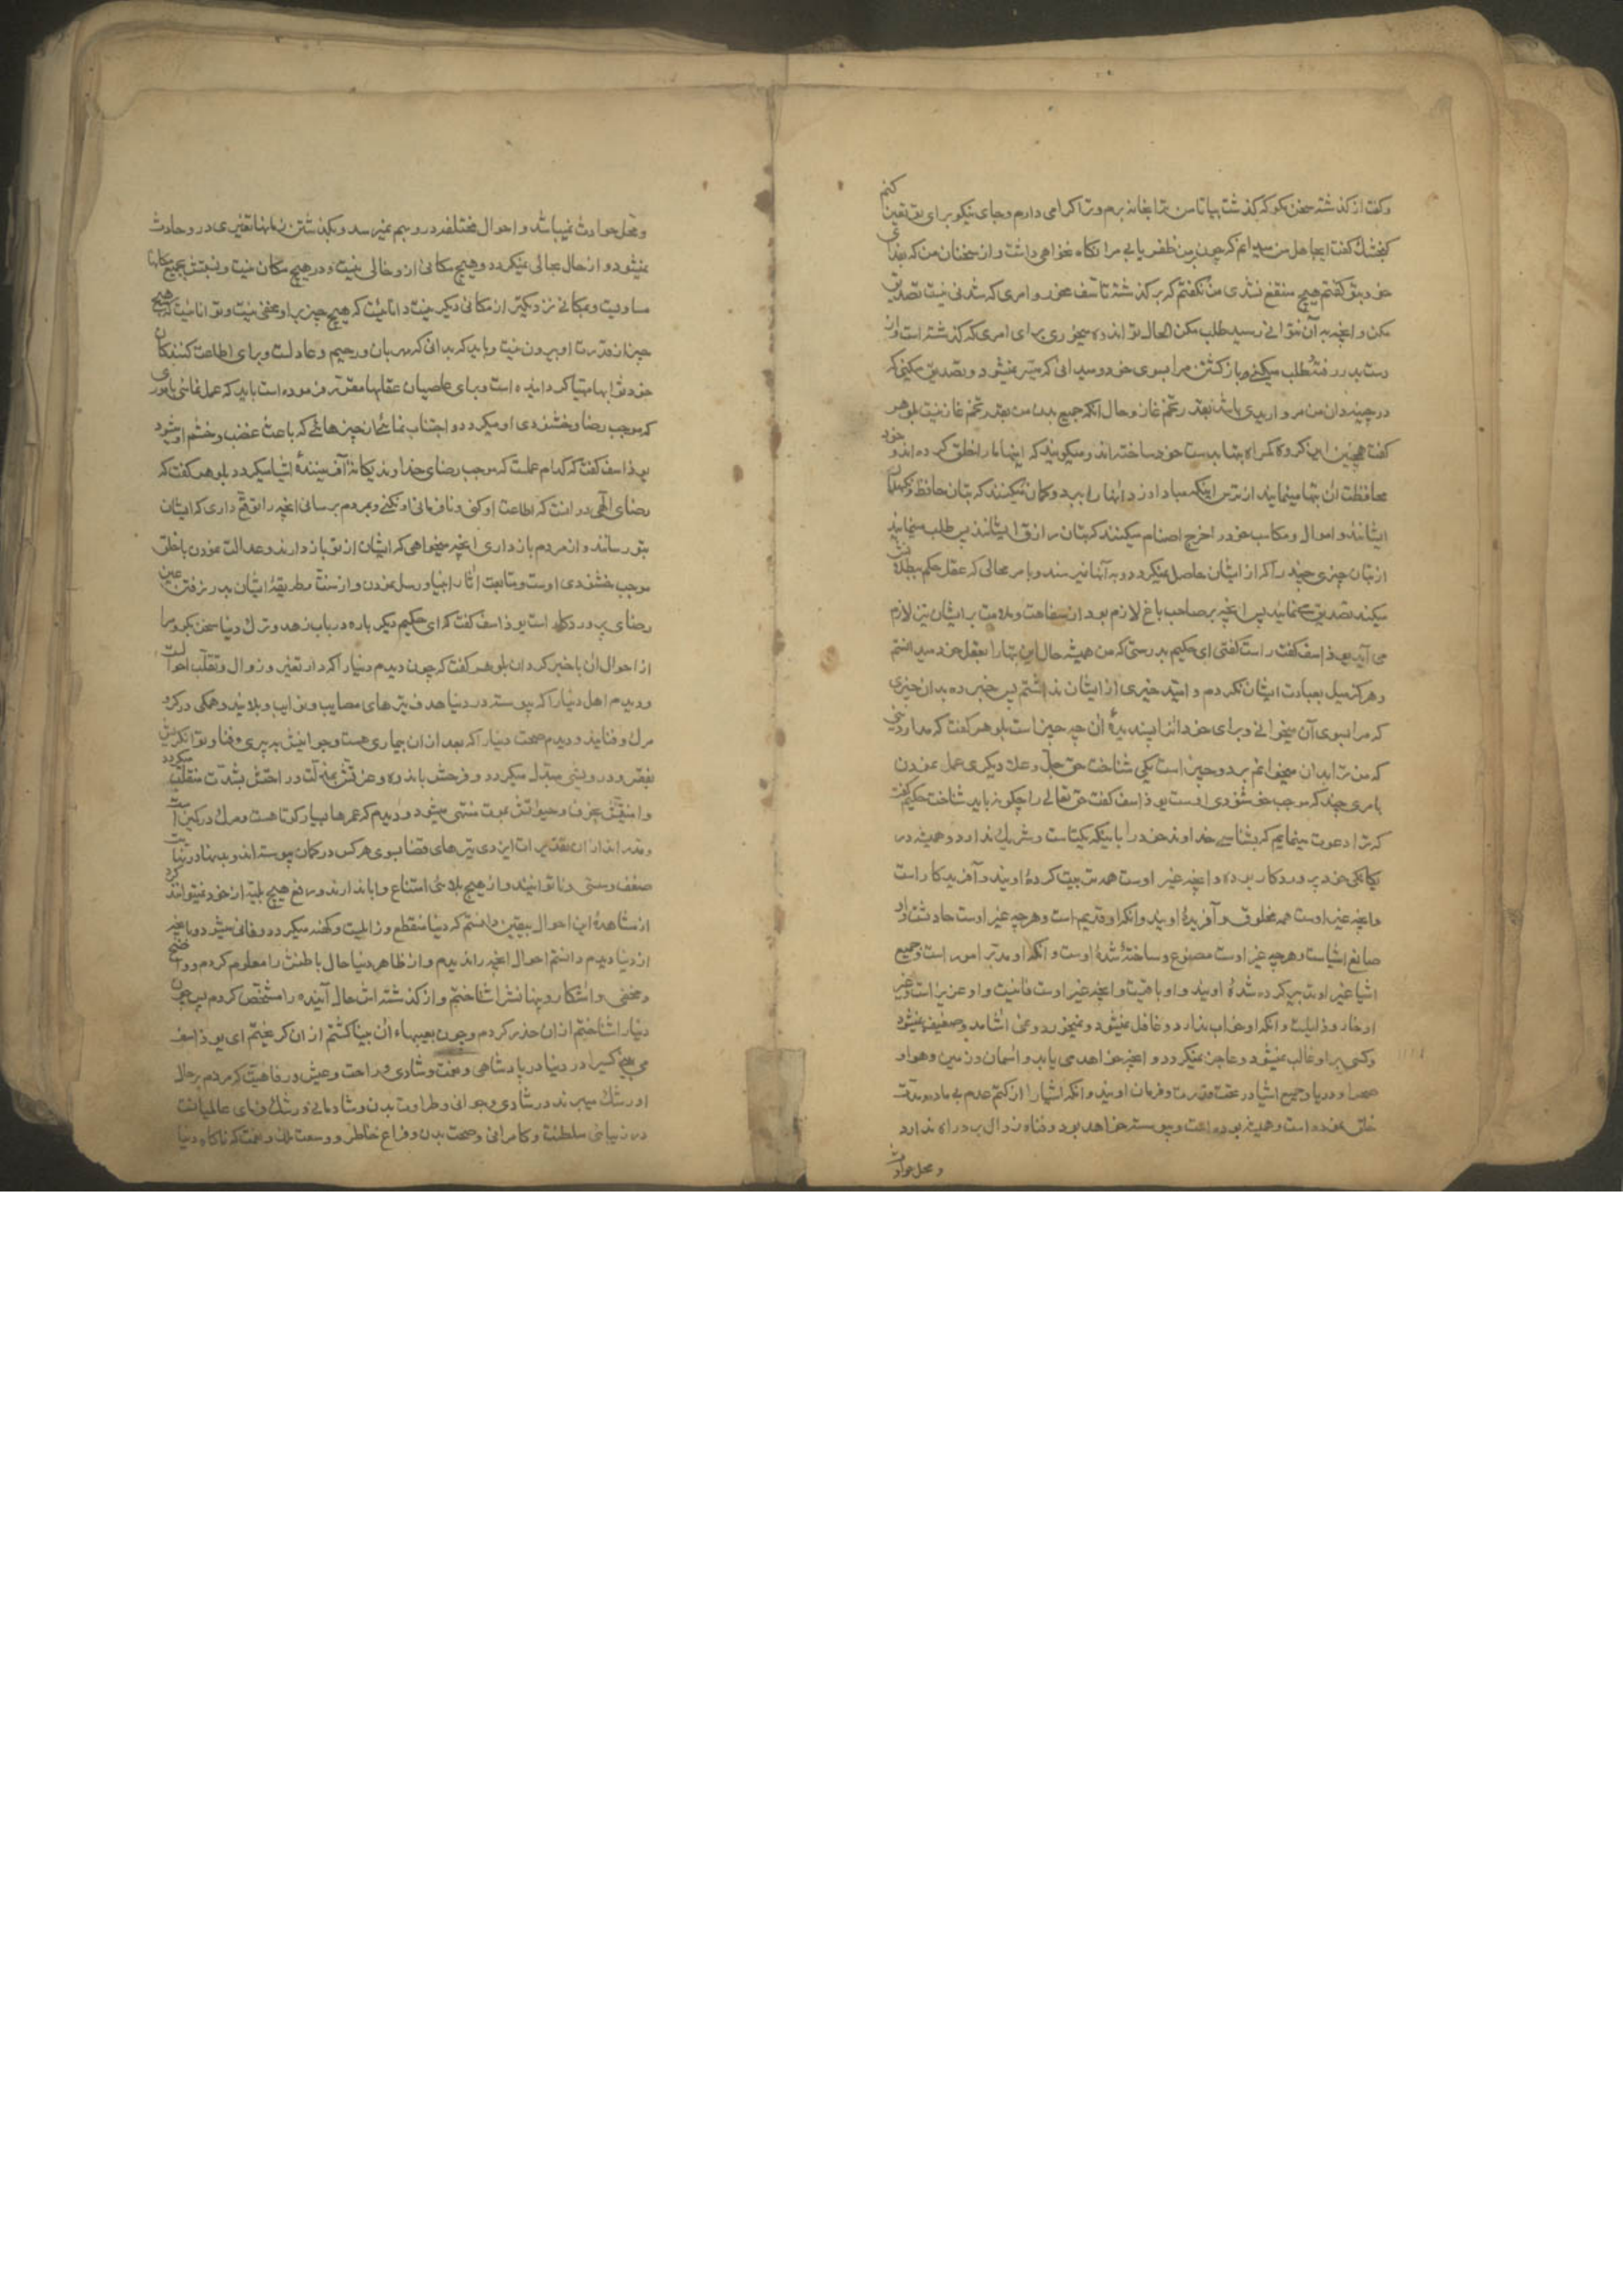 وکفت از کذشته سخن مکو که کذشت بیا تا من ترا بخانه برم و ترا کرامی دارم و جای نیکو برای تو تعیین کنم
کنجشک کفت ای جاهل من میدانم که چون بر من ظفر یابی مرا نکاه نخواهی داشت و از سخنان من که بفدای
خود بتو کفتم هیچ منتفع نشدی من نکفتم که بر کذشته تاسف مخور و امری که شدنی نیست تصدیق
مکن و انچه به آن نتوانی رسید طلب مکن الحال تو اندوه میخوری برای امری که کذشته است و از
دستت بدر رفته و طلب میکنی باز کشتن مرا بسوی خود و میدانی که میسر نمیشود و تصدیق میکنی که
در چینه دان من مرواریدی باشد بقدر تخم غاز و حال انکه جمیع بدن من بقدر تخم غاز نیست بلوهر
کفت همچنین این کروه کمراه بتها بدست خود ساخته اند و میکویند که اینها ما را خلق کرده اند و خود
محافظت ان بتها مینمایند از ترس اینکه مبادا دزد انها را ببرد و کمان میکنند که بتان حافظ و نکهبان
ایشانند و اموال و مکاسب خود را خرج اصنام میکنند که بتان رازق ایشانند پس طلب مینمایند
از بتان چیزی چند را که از ایشان حاصل نمیکردد و به آنها نمیرسند و بامر محالی که عقل حکم ببطلانش
میکند تصدیق مینمایند پس انچه بر صاحب باغ لازم بود از سفاهت و ملامت بر ایشان نیز لازم
می آید یوذاسف کفت راست کفتی ای حکیم بدرستی که من همیشه حال این بتها را بعقل خود میدانستم
و هرکز میل بعبادت ایشان نکردم و امید خیری از ایشان نداشتم پس خبر ده بدان چیزی
که مرا بسوی آن میخوانی و برای خود انرا پسندیدهٔ ان چه چیز است بلوهر کفت که مدار دینی
که من ترا بدان میخوانم بر دو چیز است یکی شناخت حق جل و علا و دیکری عمل نمودن
بامری چند که موجب خوشنودی اوست یوذاسف کفت حق تعالی را چکونه باید شناخت حکیم کفت
که ترا دعوت مینمایم که بشناسی خداوند خود را باینکه یکتاست و شریک ندارد و همیشه در
یکانکی خود پروردکار بوده و انچه غیر اوست همه تربیت کردهٔ اویند و آفریدکار است
و انچه غیر اوست همه مخلوق و آفریدهٔ اویند و انکه او قدیم است و هرچه غیر اوست حادث و او
صانع اشیاست و هرچه غیر اوست مصنوع و ساخته شدهٔ اوست و انکه او مدبر امور است و جمیع
اشیا غیر او تدبیر کرده شدهٔ اویند و او باقیست و انچه غیر اوست فانیست و او عزیز است و غیر
او خار و ذلیلست و انکه او خواب ندارد و غافل نمیشود و نمیخورد و نمی اشامد و ضعیف نمیشود
و کسی بر او غالب نمیشود و عاجز نمیکردد و انچه خواهد می یابد و اسمان و زمین و هوا و
صحرا و دریا و جمیع اشیا در تحت قدرت و فرمان اویند و انکه اشیا را از کتم عدم بی ماده و مدت
خلق نموده است و همیشه بوده است و پیوسته خواهد بود و فنا و زوال برو راه ندارد
و محل حوادث
و محل حوادث نمیباشد و احوال مختلفه در و بهم نمیرسد و بکذشتن زمانها تغیری در و حادث
نمیشود و از حال بحالی نمیکردد و هیچ مکانی از و خالی نیست و در هیچ مکان نیست و نسبتش بجمیع مکانها
مساویست و بمکانی نزدیکتر از مکانی دیکر نیست دانائیست که هیچ چیز بر او مخفی نیست و توانائیست که هیچ
چیز از قدرت او بیرون نیست و باید که بدانی که مهربان و رحیم و عادلست و برای اطاعت کنندکان
خود ثوابها مهیا کردانیده است و برای عاصیان عقابها مقرر فرموده است باید که عمل نمائی بامری
که موجب رضا و خشنودی او میکردد و اجتناب نمائی از ان چیزهائی که باعث غضب و خشم او میشود
یوذاسف کفت که کدام عملست که موجب رضای خداوند یکانهٔ آفرینندهٔ اشیا میکردد بلوهر کفت که
رضای الهی در انست که اطاعت او کنی و نافرمانی او نکنی و بمردم برسانی انچه را توقع داری که ایشان
بتو رسانند و از مردم باز داری انچه میخواهی که ایشان از تو باز دارند و عدالت نمودن با خلق
موجب خشنودی اوست و متابعت اثار انبیا و رسل نمودن و از سنت و طریقهٔ ایشان بدر نرفتن عین
رضای پروردکار است یوذاسف کفت که ای حکیم دیکر باره در باب زهد و ترک دنیا سخن بکو و مرا
از احوال ان با خبر کردان بلوهر کفت که چون دیدم دنیا را که دار تغیر و زوال و تقلب احوالست
و دیدم اهل دنیا را که پیوسته در دنیا هدف تیرهای مصایب و نوایب و بلایند و همکی در کرو
مرک و فنایند و دیدم صحت دنیا را که بعد از ان بیماری هست و جوانیش به پیری و فنا و توانکریش
بفقر و درویشی مبدل میکردد و فرحش باندوه و عزتش بمذلت و راحتش بشدت منقلب میکردد
و امنیتش بخوف و حیواتش بموت منتهی میشود و دیدم که عمرها بسیار کوتاهست و مرک در کمین است
و قدر اندازان تقدیرات ایزدی تیرهای قضا بسوی هر کس در کمان پیوسته اند و بدنها در نهایت
ضعف و سستی و ناتوانیند و از هیچ بلائی امتناع و ابا ندارند و دفع هیچ بلیه از خود نمیتوانند کرد
از مشاهدهٔ این احوال بیقین دانستم که دنیا منقطع و زایلست و کهنه میکردد و فانی میشود و بانچه
از دنیا دیدم دانستم احوال انچه را ندیدم و از ظاهر دنیا حال باطنش را معلوم کردم و واضح
و مخفی و اشکار و پنهانش را شناختم و از کذشته اش حال آینده را مشخص کردم پس چون
دنیا را شناختم از ان حذر کردم و چون بعیبهاء ان بینا کشتم از ان کریختم ای یوذاسف
می بینی کسی را در دنیا در پادشاهی و نعمت و شادی و راحت و عیش و رفاهیت که مردم بر حال
او رشک میبرند در شادی و جوانی و طراوت بدن و شادمانی و رشک فرمای عالمیانست
در زیبائی سلطنت و کامرانی و صحت بدن و فراغ خاطر و وسعت ملک و نعمت که ناکاه دنیا